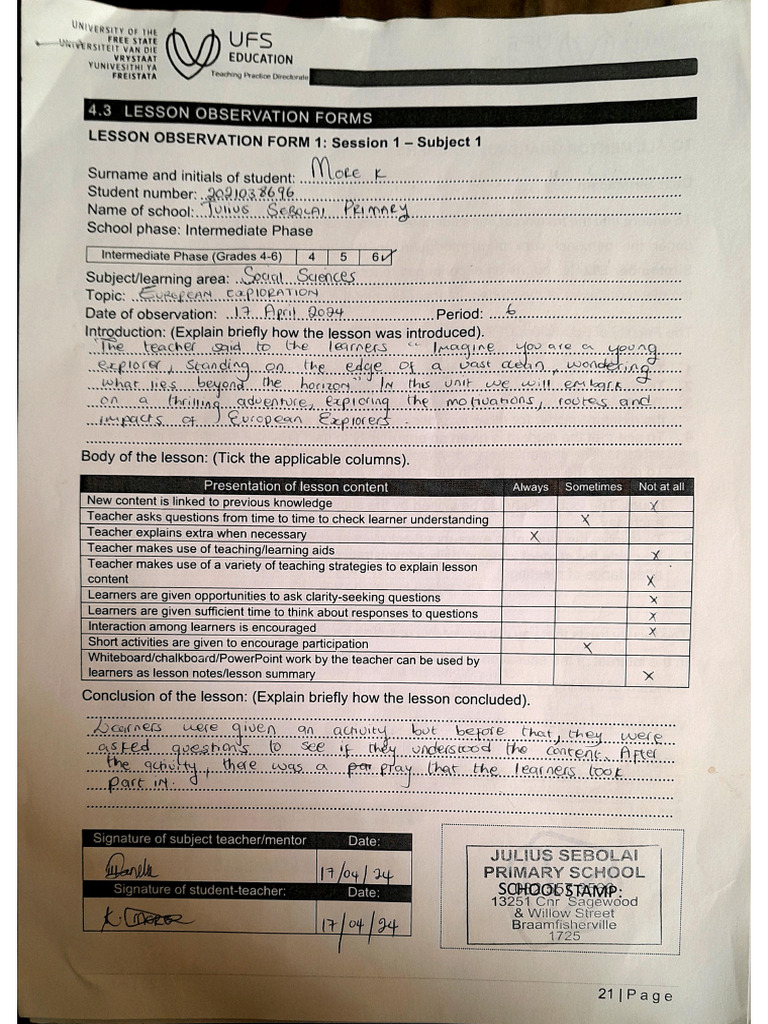 UNIVERSITY OF THE
FREE STATE
UNIVERSITEIT VAN DIE
VRYSTAAT
YUNIVESITHI YA
FREISTATA
UFS
EDUCATION
Teaching Practice Directorate
4.3 LESSON OBSERVATION FORMS
LESSON OBSERVATION FORM 1: Session 1 – Subject 1
Surname and initials of student: More K
Student number: 2021038696
Name of school: Julius Sebolai Primary
School phase: Intermediate Phase
Intermediate Phase (Grades 4-6) 4 5 6
Subject/learning area: Social Sciences
Topic: European Exploration
Date of observation: 17 April 2024 Period: 6
Introduction: (Explain briefly how the lesson was introduced).
The teacher said to the learners "Imagine you are a young
explorer, standing on the edge of a vast ocean, wondering
what lies beyond the horizon" In this unit we will embark
on a thrilling adventure, exploring the motivations, routes and
impacts of European Explorers.
Body of the lesson: (Tick the applicable columns).
Presentation of lesson content Always Sometimes Not at all
New content is linked to previous knowledge X
Teacher asks questions from time to time to check learner understanding X
Teacher explains extra when necessary X
Teacher makes use of teaching/learning aids X
Teacher makes use of a variety of teaching strategies to explain lesson
content X
Learners are given opportunities to ask clarity-seeking questions X
Learners are given sufficient time to think about responses to questions X
Interaction among learners is encouraged X
Short activities are given to encourage participation X
Whiteboard/chalkboard/PowerPoint work by the teacher can be used by
learners as lesson notes/lesson summary X
Conclusion of the lesson: (Explain briefly how the lesson concluded).
Learners were given an activity but before that, they were
asked questions to see if they understood the content. After
the activity, there was a pray that the learners took
part in.
Signature of subject teacher/mentor Date:
17/04/24
Signature of student-teacher: Date:
K. More 17/04/24
JULIUS SEBOLAI
PRIMARY SCHOOL
SCHOOL STAMP:
13251 Cnr Sagewood
& Willow Street
Braamfisherville
1725
21 | Page